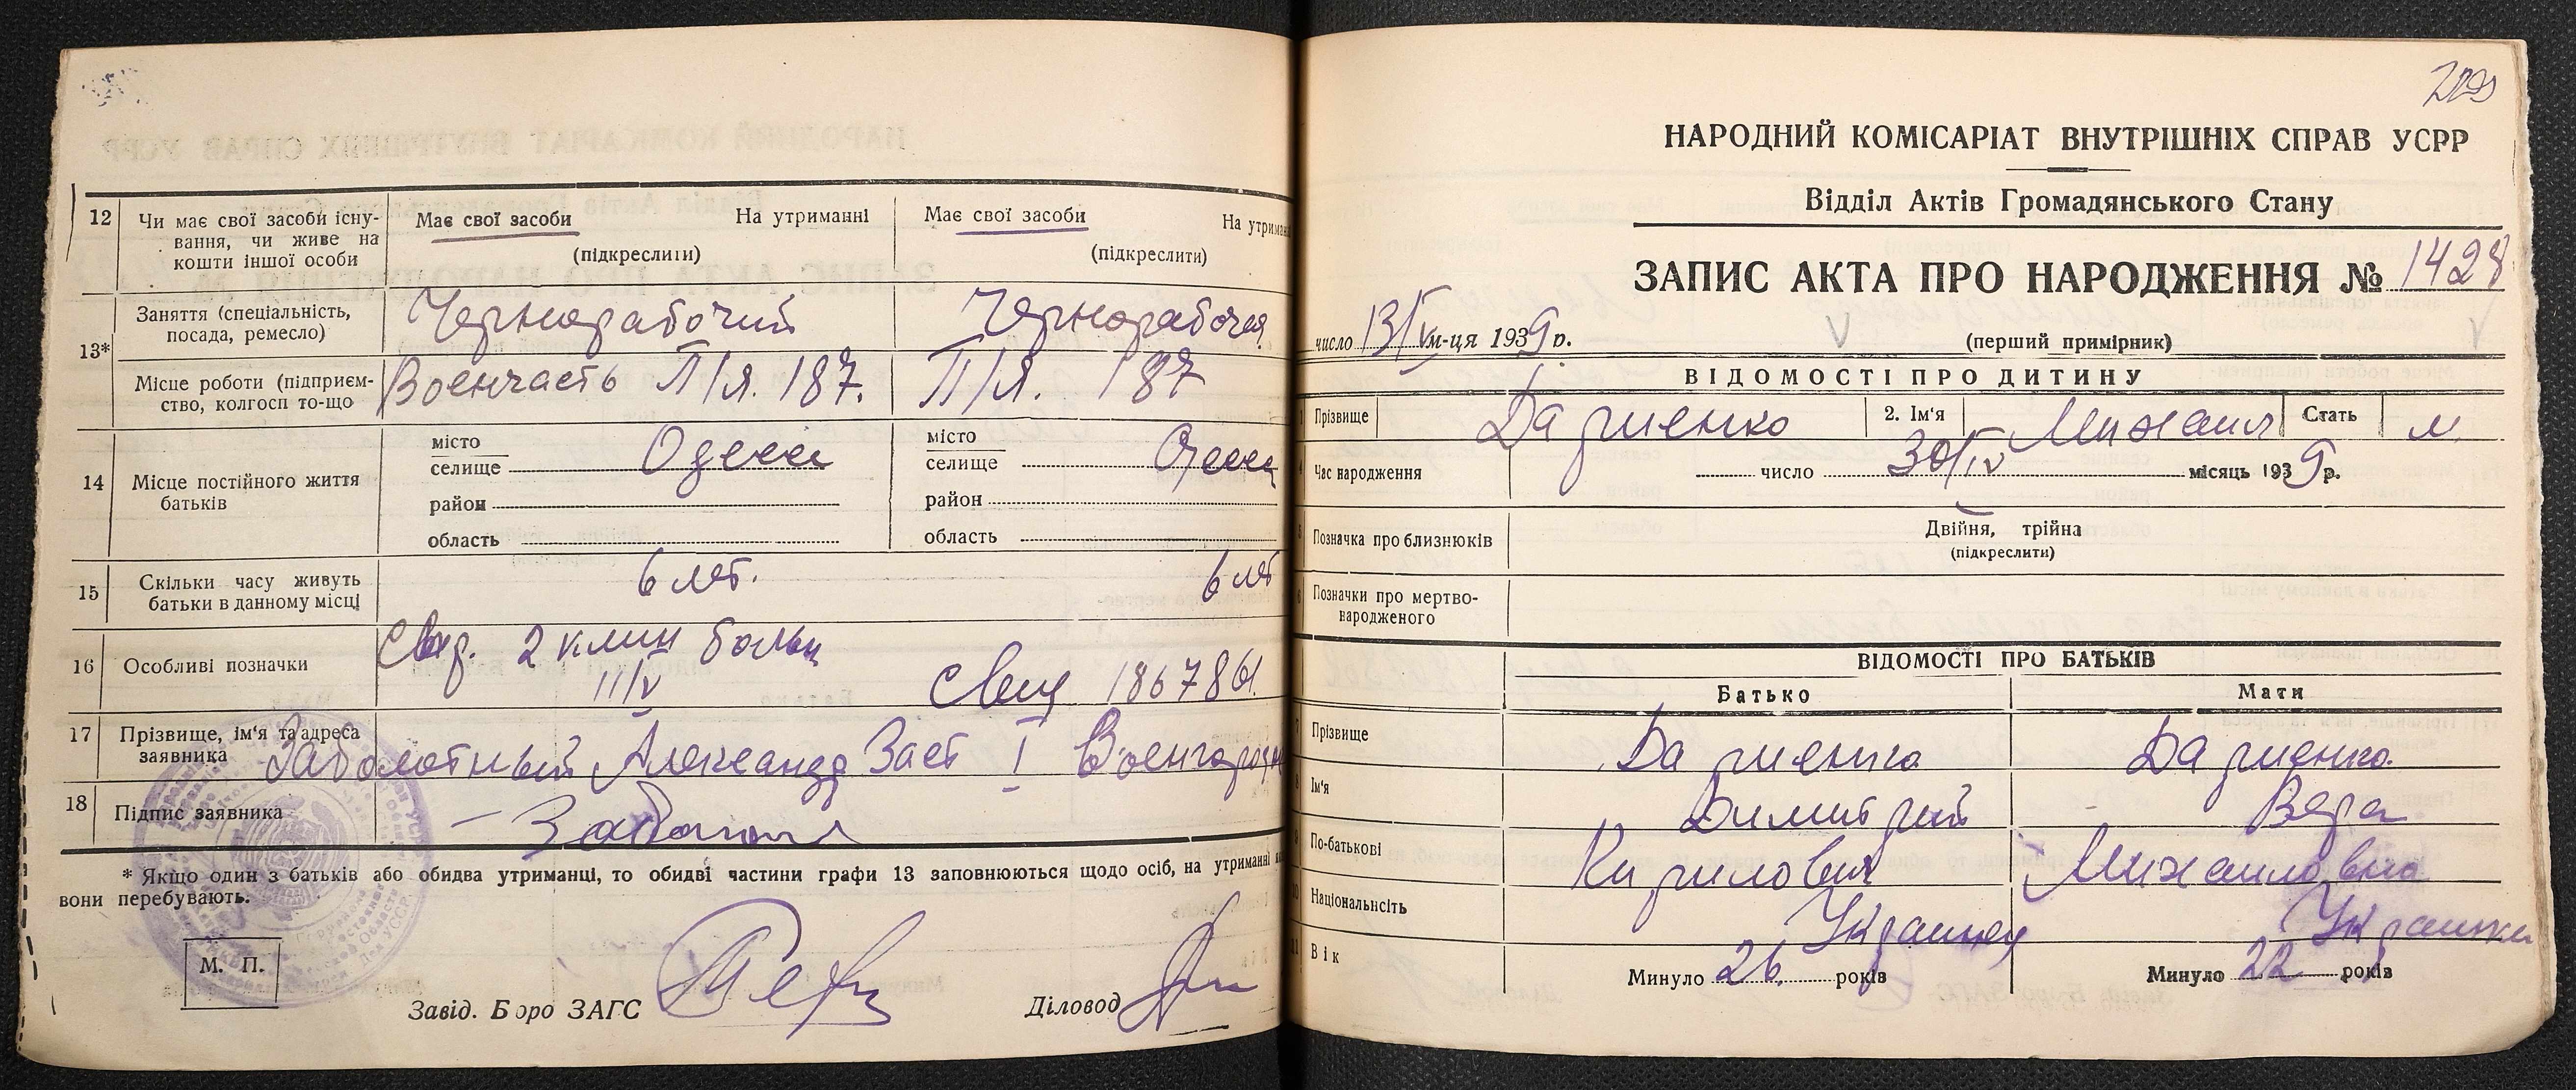 12 Чи має свої засоби існу-
вання, чи живе на
кошти іншої особи
Має свої засоби На утриманні
(підкреслити)
Має свої засоби На утриман
(підкреслити)
13*
Заняття (спеціальність,
посада, ремесло)
Чернорабочий Чернорабочая
Місце роботи (підприєм-
ство, колгосп то-що
Военчасть П/Я. 187. П/Я. 187
14 Місце постійного життя
батьків
місто
селище Одесса
район
область
місто
селище Одесса
район
область
15 Скільки часу живуть
батьки в данному місці
6 лет. 6 лет
16 Особливі позначки
2 клин больн
11/V
1867861
17 Прізвище, ім'я та адреса
заявника Заболотный Александр Заст I Военгородок
18 Підпис заявника
* Якщо один з батьків або обидва утриманці, то обидві частини графи 13 заповнюються щодо осіб, на утриманні
вони перебувають.
М. П.
Завід. Бюро ЗАГС Діловод
НАРОДНИЙ КОМІСАРІАТ ВНУТРІШНІХ СПРАВ УСРР
Відділ Актів Громадянського Стану
ЗАПИС АКТА ПРО НАРОДЖЕННЯ № 1428
число 13/V м-ця 1939 р.
(перший примірник)
ВІДОМОСТІ ПРО ДИТИНУ
1 Прізвище Дариенко 2. Ім'я Михаил Стать м.
4 Час народження число 30/IV місяць 1939 р.
5 Позначка про близнюків Двійня, трійна
(підкреслити)
6 Позначки про мертво-
народженого
ВІДОМОСТІ ПРО БАТЬКІВ
Батько Мати
7 Прізвище Дариенко Дариенко
8 Ім'я Димитрий Вера
9 По-батькові Кирилович Михаиловна
10 Національність Украинец Украинка
11 Вік Минуло 26 років Минуло 22 років